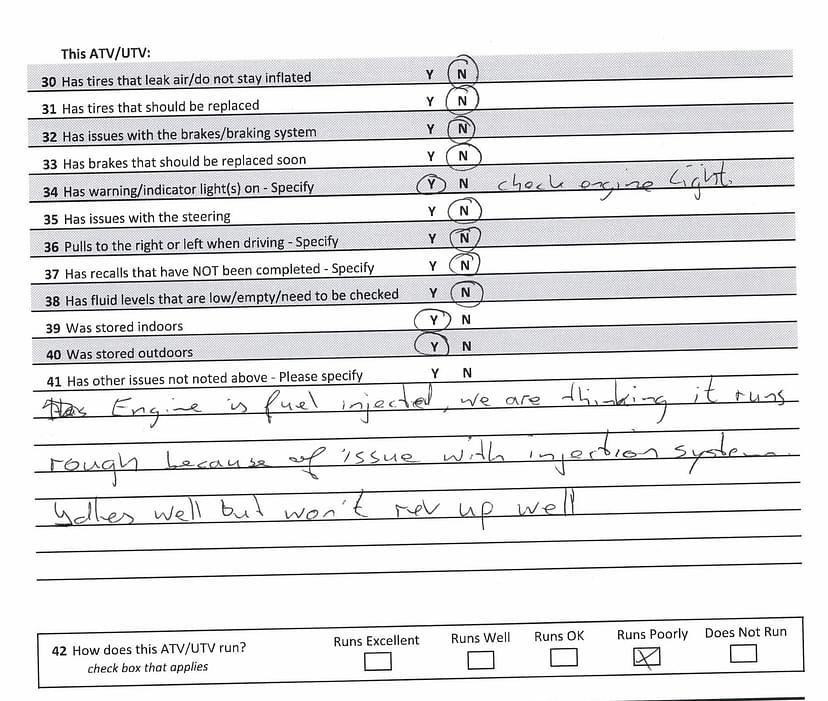 This ATV/UTV:
30 Has tires that leak air/do not stay inflated Y N
31 Has tires that should be replaced Y N
32 Has issues with the brakes/braking system Y N
33 Has brakes that should be replaced soon Y N
34 Has warning/indicator light(s) on - Specify Y N check engine light.
35 Has issues with the steering Y N
36 Pulls to the right or left when driving - Specify Y N
37 Has recalls that have NOT been completed - Specify Y N
38 Has fluid levels that are low/empty/need to be checked Y N
39 Was stored indoors Y N
40 Was stored outdoors Y N
41 Has other issues not noted above - Please specify Y N
Engine is fuel injected, we are thinking it runs
rough because of issue with injection system.
Idles well but won't rev up well
Runs Excellent Runs Well Runs OK Runs Poorly Does Not Run
42 How does this ATV/UTV run?
check box that applies